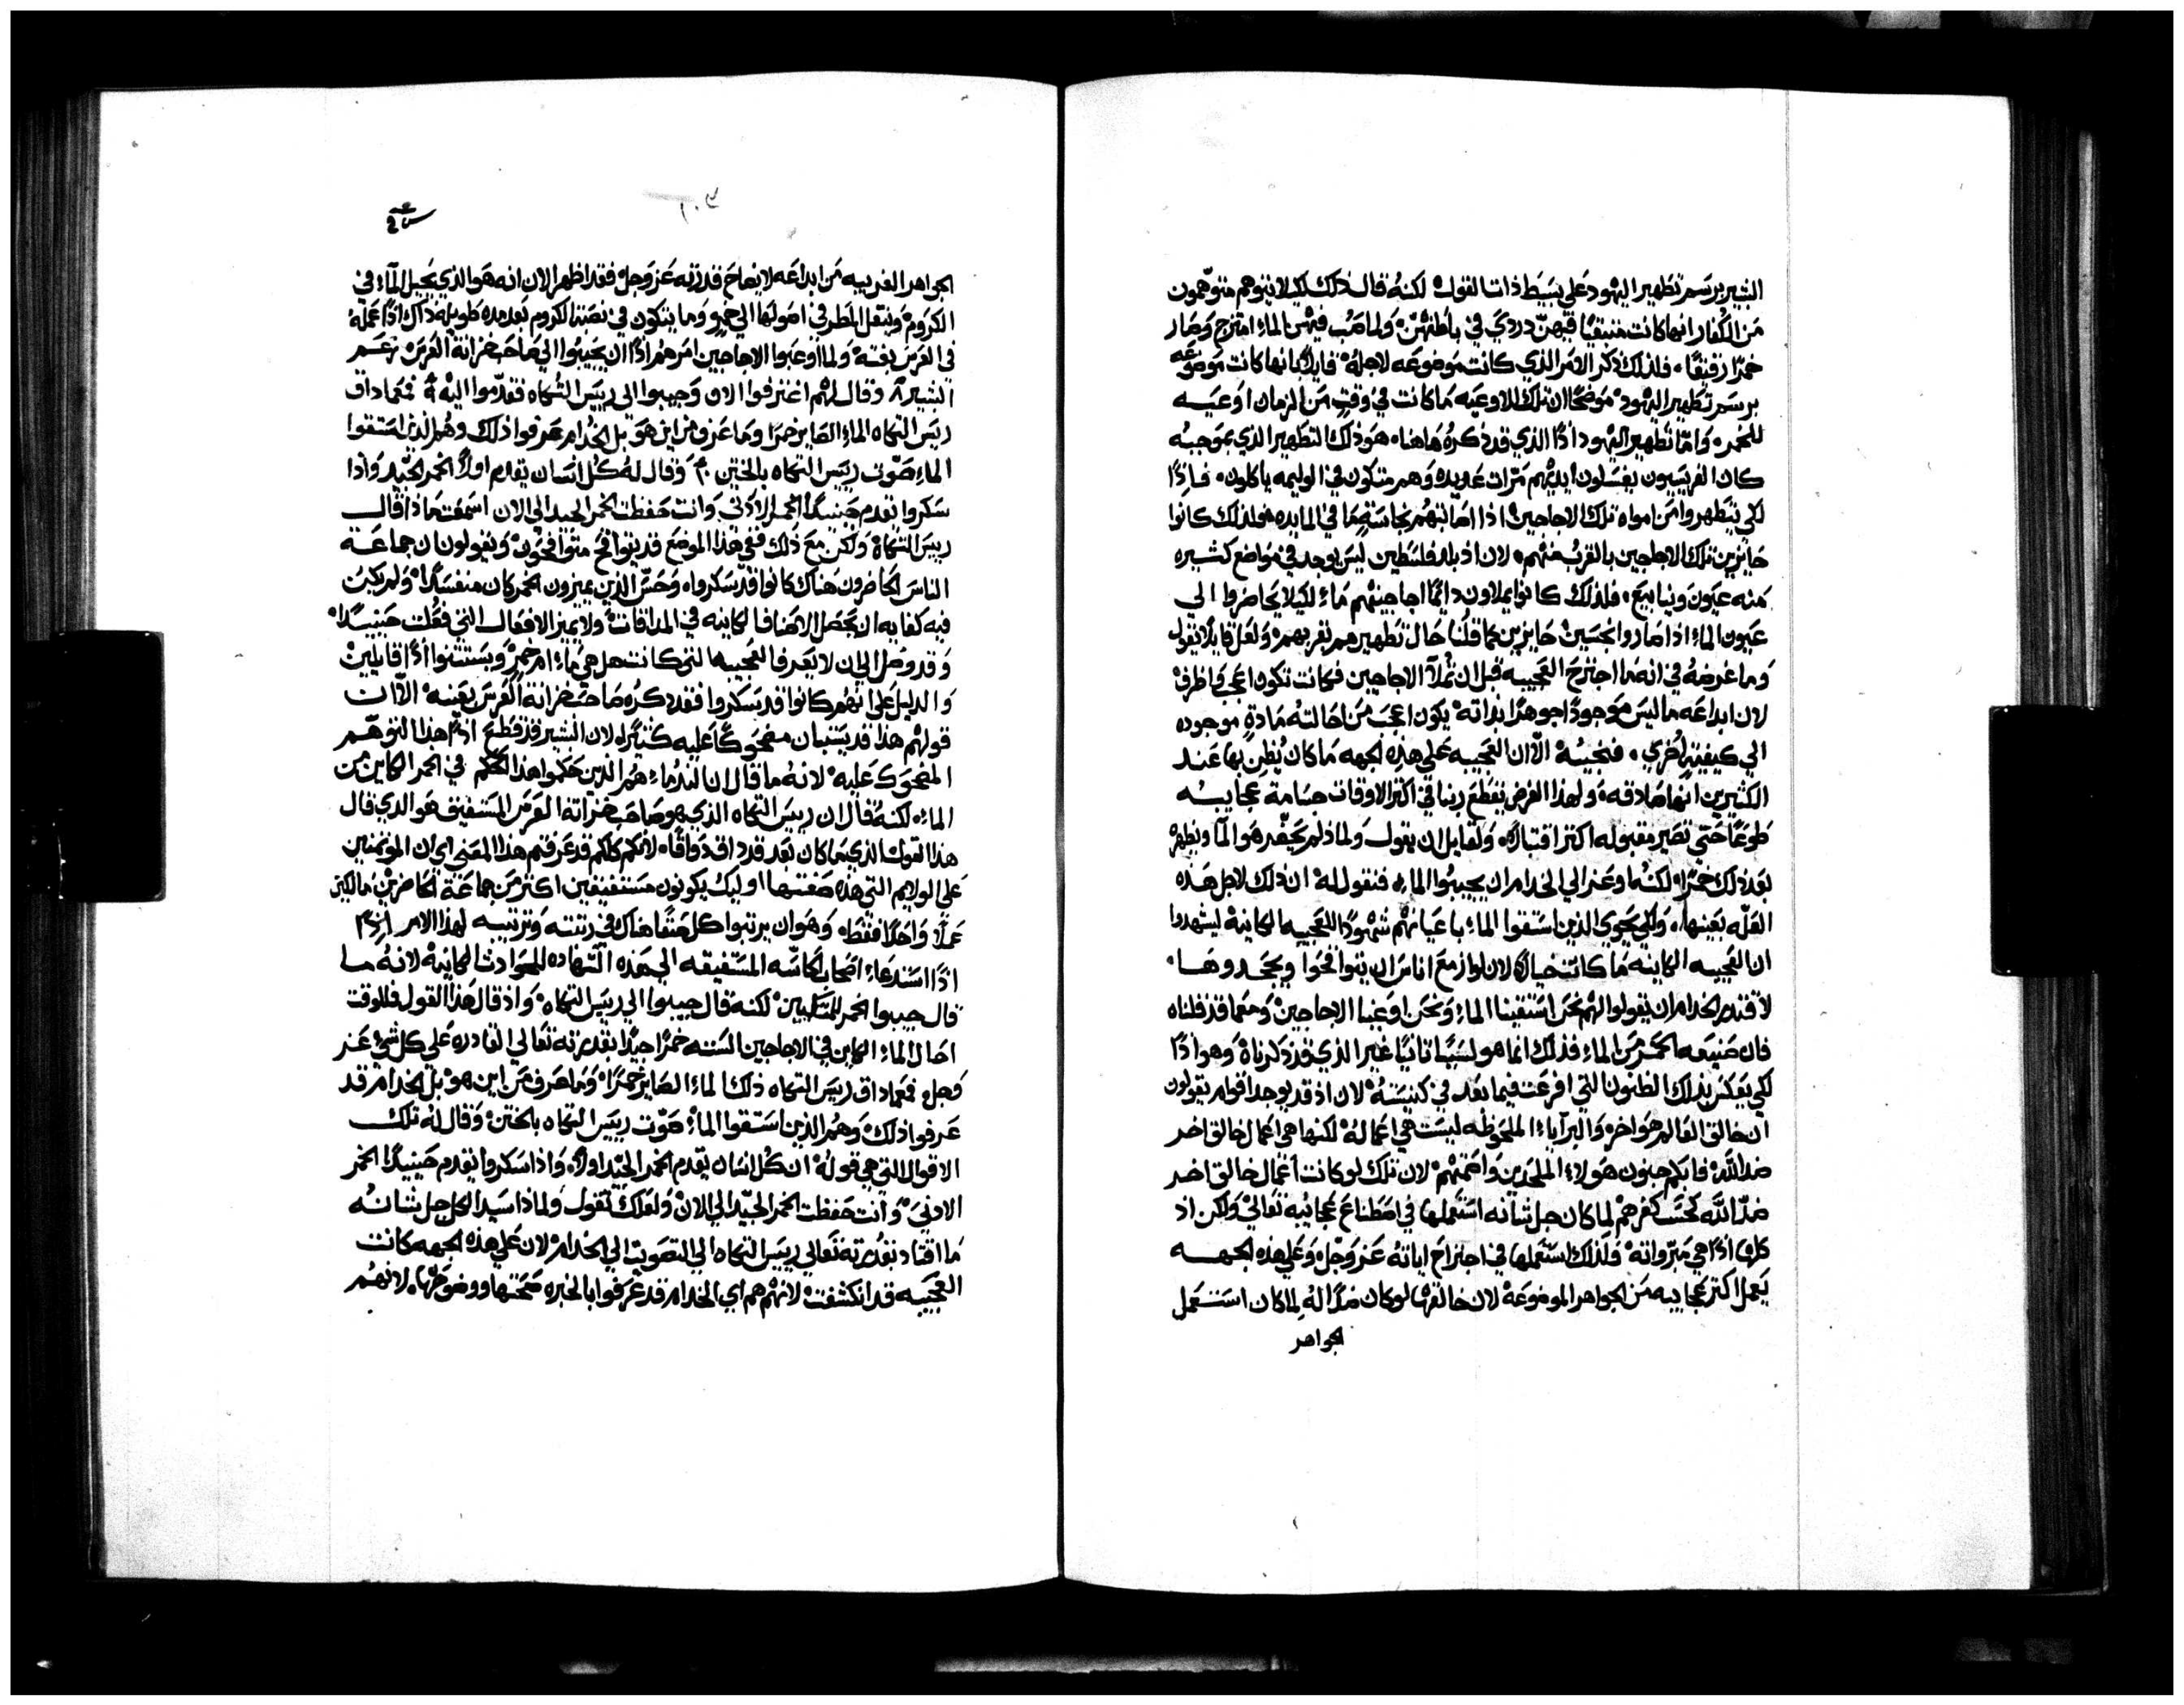 البشير برسم تطهير اليهود على بسيط ذات القول لكنه قال ذلك لكيلا يتوهم متوهمون
من الكفار انها كانت متبقيًا فيهن دردي في باطنهن ولما صب فيهن الماء امتزج وصار
خمرًا رقيقًا فلذلك ذكر الامر الذي كانت موضوعه لاجله قايلاً انها كانت موضوعه
برسم تطهير اليهود موضحًا ان تلك الاوعيه ما كانت في وقتٍ من الزمان اوعيه
للخمر واما تطهير اليهود اذًا الذي قد ذكره هاهنا هو ذلك التطهير الذي بموجبه
كان الفريسيون يغسلون ايديهم مرات عديده وهم متكون في الوليمه ياكلون فاذًا
لكي يتطهروا من امواه تلك الاجاجين اذا اصابتهم نجاسة ما في المايده ولذلك كانوا
حايزين تلك الاجاجين بالقرب منهم لان اذ بلد فلسطين ليس يوجد في مواضع كثيره
منه عيون وينابيع فلذلك كانوا يملاون دايمًا اجاجينهم ماء لكيلا يحاضروا الي
عيون الماء اذا صاروا نجسين حايزين كما قلنا حال تطهيرهم بقربهم ولعل قايلاً يقول
وما غرضه في انه ما اجترح العجيبه قبل ان تملآ الاجاجين فكانت تكون اعجب واظرف
لان ابداعه ما ليس موجودًا جوهرًا بذاته يكون اعجب من احالته مادةٍ موجوده
الي كيفيةٍ اخري فنجيبه الآان العجيبه على هذه الجهه ما كان يُظن بها عند
الكثيرين انها صادقه ولهذا الغرض يقطع ربنا في اكثر الاوقات جسامة عجايبه
طوعًا حتي تصير مقبوله اكثر اقتبالاً ولقايل ان يقول ولماذا لم يحضر هو المآ ويظهره
بعد ذلك خمرًا لكنه اوعز الي الخدام ان يجيبوا الماء فنقول له ان ذلك لاجل هذه
العلّه بعينها ولكي يحوي الذين استقوا الماء باعيانهم شهودًا للعجيبه الكاينة ليشهدوا
ان العجيبه الكاينه ما كانت خيالاً لان لو ازمع اناس ان يتواقحوا ويجحدوها
لاقتدر الخدام ان يقولوا لهم نحن استقينا الماء ونحن اوعبنا الاجاجين ومعما قد قلناه
فان صنيعه الخمر من الماء فذلك انما هو لسببًا ثانيًا غير الذي قد ذكرناه وهو اذًا
لكي يعكس بذلك الظنون التي افرعت فيما بعد في كنيسته لان اذ قد يوجد اقوام يقولون
ان خالق العالم هو اخر والبرآياء الملحوظه ليست هي اعماله لكنها هي اعمال خالق اخر
ضد الله فايكم جنون هولاء الملحدين واضحتهم لان تلك لو كانت اعمال خالق اخر
ضد الله كحسب كفرهم لما كان جل شانه استعملها في اصطناع عجائبه تعالي ولكن اذ
كلها اذًا هي مبروانه فلذلك استعملها في اجتراح اياته عز وجل وعلى هذه الجهه
يعمل اكثر عجايبه من الجواهر الموضوعة لان خالقها لو كان ضدًا له لما كان استعمل
الجواهر
١٠٣
الجواهر الغريبه من ابداعه لايضاح قدرته عز وجل فقد اظهر الان انه هو الذي يحيل المآء في
الكروم وينقل المطر في اصولها الي خمرٍ وما يتكون في نصبتنا لكروم بعد مده طويله ذاك اذًا عمله
في العرس بغتة ولما اوعبوا الاجاجين امرهم اذًا ان يجيبوا الي صاحب خزانة العرس زعم
البشير ٨ وقال لهم اغترفوا الان وجيبوا الى رييس التكاه فقدموا اليه ٩ فمعما داق
رييس التكاه الماء الصاير خمرًا وما عرف من اين هو بل الخدام عرفوا ذلك وهم الذين استقوا
الماء صوّت رييس التكاه بالختن ١٠ وقال له كل انسان يقدم اولاً الخمر الجيد واذا
سكروا يقدم حينيذٍ الخمر الادنى وانت حفظت الخمر الجيد الي الان اسمعت ماذا قال
رييس التكاة ولكن مع ذلك ففي هذا الموضع قد يتواقح متواقحون ويقولون ان جماعة
الناس الحاضرون هناك كانوا قد سكروا وحس الذين يميزون الخمر كان منفسدًا ولم يكن
فيه كفايه ان يحصل الاصناف الكاينه في المداقات ولا يميز الافعال التي فُعلت حينيذٍ
وقد وصل الي ان لا يعرف العجيبه التي كانت هل هي ماء ام خمر ويستتنوا اذًا قايلين
والدليل على انهم كانوا قد سكروا فقد ذكره صاحب خزانة العرس بعينه الآان
قولهم هذا قد يتبان مضحوكًا عليه كثيرًا لان البشير قد قطع اذًا هذا التوهّم
المضحوك عليه لانه ما قال ان الندماء هم الذين حكموا هذا الحكم في الخمر الكاين من
الماء لكنه قال ان رييس التكاه الذي هو صاحب خزانة العرس المستفيق هو الذي قال
هذا القول الذي ما كان بعد قد داق ذواقًا لانكم كلكم قد عرفتم هذا المعني اي ان المؤتمنين
على الولايم التي هذه صفتها اوليك يكونون مستفيقين اكثر من جماعة الحاضرين مالكين
عملاً واحدًا فقط وهو ان يرتبوا كل صنفًا هناك في رتبته وترتيبه لهذا الامر
اذًا استدعاء اصحاب الحاسّه المستفيقه الي هذه الشهاده للحوادث الكاينة لانه ما
قال جيبوا الخمر للمتكيين لكنه قال جيبوا الى رييس التكاه واذ قال هذا القول فللوقت
احال الماء الكاين في الاجاجين الستة خمرًا جيدًا بقدرته تعالي القادره على كل شيء عز
وجل فمعما داق رييس التكاه ذلك الماء الصاير خمرًا وما عرف من اين هو بل الخدام قد
عرفوا ذلك وهم الذين استقوا الماء صوّت رييس التكاه بالختن وقال له تلك
الاقوال التي هي قوله ان كل انسان يقدم الخمر الجيد اولاً واذا سكروا يقدم حينيذٍ الخمر
الادنى وانت حفظت الخمر الجيد الي الان ولعلك تقول ولماذا سيد الكل جل شانه
ما اقتاد بقدرته تعالى رييس التكاه الي التصويت الي الخدام لان على هذه الجهه كانت
العجيبه قد انكشفت لانهم هم اي الخدام قد عرفوا بالخبره صحتها ووضوحها لانهم